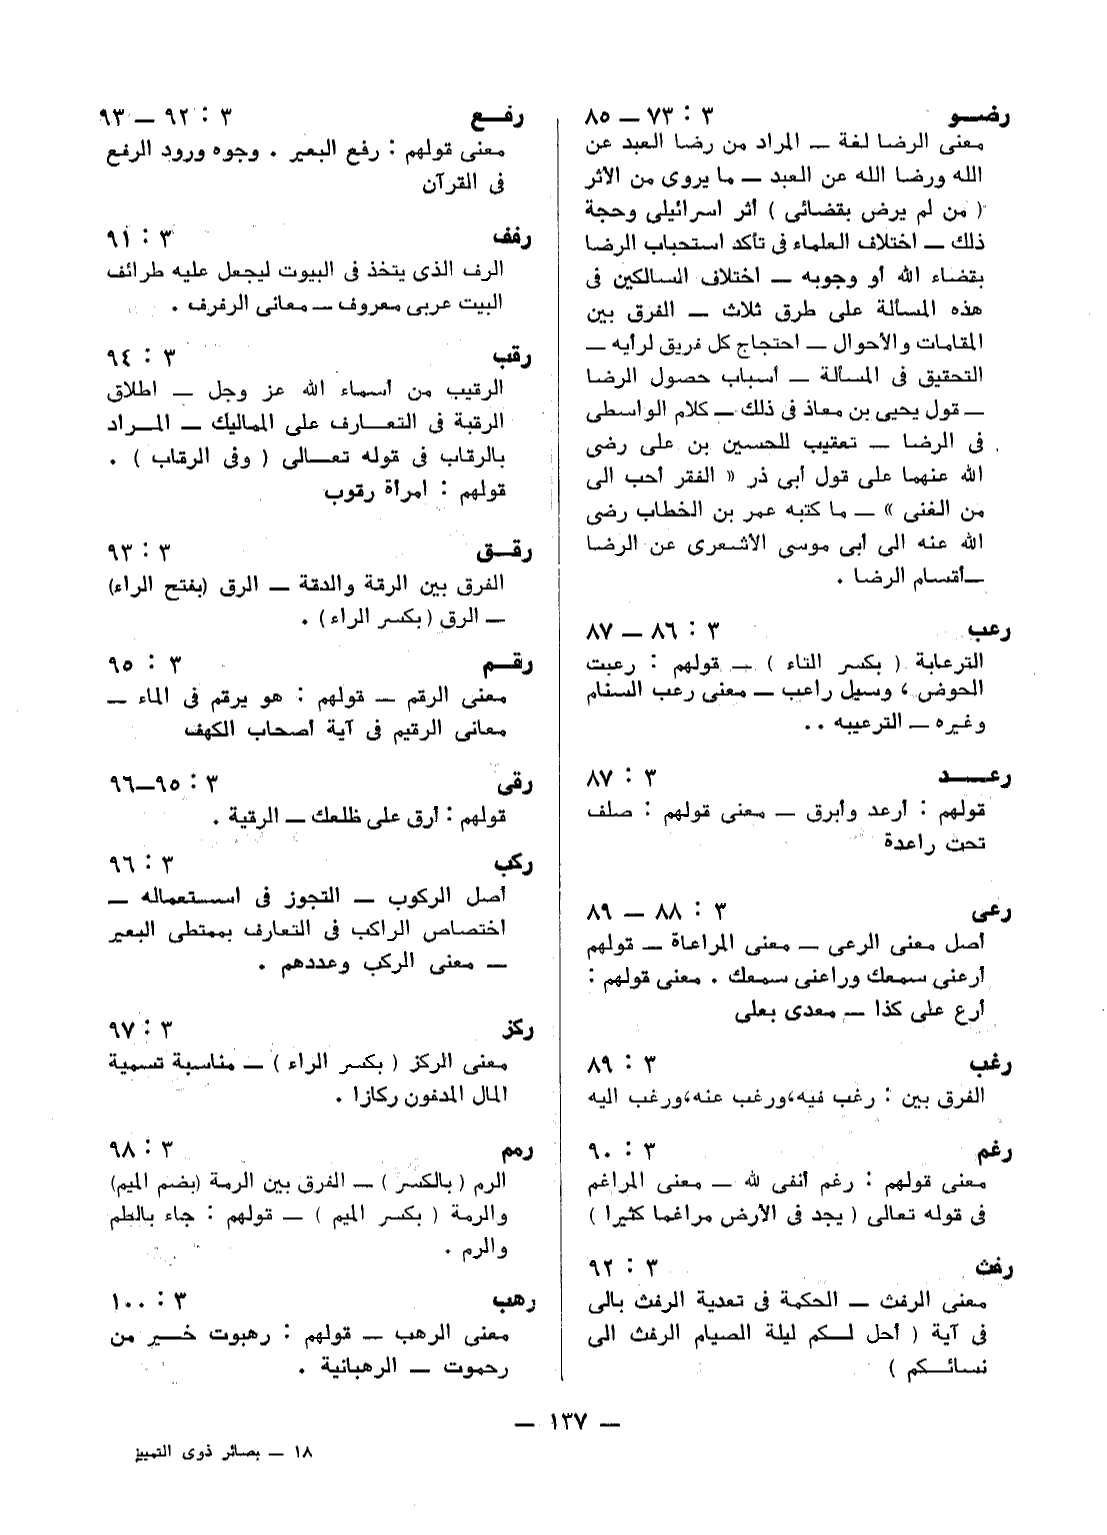 رضـو ٣ : ٧٣ – ٨٥
معنى الرضا لغة – المراد من رضا العبد عن
الله ورضا الله عن العبد – ما يروى من الأثر
( من لم يرض بقضائى ) أثر اسرائيلى وحجة
ذلك – اختلاف العلماء فى تأكد استحباب الرضا
بقضاء الله أو وجوبه – اختلاف السالكين فى
هذه المسألة على طرق ثلاث – الفرق بين
المقامات والأحوال – احتجاج كل فريق لرأيه –
التحقيق فى المسألة – أسباب حصول الرضا
– قول يحيى بن معاذ فى ذلك – كلام الواسطى
فى الرضا – تعقيب للحسين بن على رضى
الله عنهما على قول أبى ذر « الفقر أحب الى
من الغنى » – ما كتبه عمر بن الخطاب رضى
الله عنه الى أبى موسى الأشعرى عن الرضا
–أقسام الرضا .
رعب ٣ : ٨٦ – ٨٧
الترعابة ( بكسر التاء ) – قولهم : رعبت
الحوض ، وسيل راعب – معنى رعب السنام
وغيره – الترعيبه . .
رعـــد ٣ : ٨٧
قولهم : أرعد وأبرق – معنى قولهم : صلف
تحت راعدة
رعى ٣ : ٨٨ – ٨٩
أصل معنى الرعى – معنى المراعاة – قولهم
أرعنى سمعك وراعنى سمعك . معنى قولهم :
أرع على كذا – معدى بعلى
رغب ٣ : ٨٩
الفرق بين : رغب فيه،ورغب عنه،ورغب اليه
رغم ٣ : ٩٠
معنى قولهم : رغم أنفى لله – معنى المراغم
فى قوله تعالى ( يجد فى الأرض مراغما كثيرا )
رفث ٣ : ٩٢
معنى الرفث – الحكمة فى تعدية الرفث بالى
فى آية ( أحل لـكم ليلة الصيام الرفث الى
نسائـكم )
رفـع ٣ : ٩٢ – ٩٣
معنى قولهم : رفع البعير . وجوه ورود الرفع
فى القرآن
رفف ٣ : ٩١
الرف الذى يتخذ فى البيوت ليجعل عليه طرائف
البيت عربى معروف – معانى الرفرف .
رقب ٣ : ٩٤
الرقيب من أسماء الله عز وجل – اطلاق
الرقبة فى التعـارف على المماليك – المـراد
بالرقاب فى قوله تعـالى ( وفى الرقاب ) .
قولهم : امرأة رقوب
رقـق ٣ : ٩٣
الفرق بين الرقة والدقة – الرق (بفتح الراء)
– الرق ( بكسر الراء ) .
رقـم ٣ : ٩٥
معنى الرقم – قولهم : هو يرقم فى الماء –
معانى الرقيم فى آية أصحاب الكهف
رقى ٣ : ٩٥–٩٦
قولهم : أرق على ظلعك – الرقية .
ركب ٣ : ٩٦
أصل الركوب – التجوز فى اسـتعماله –
اختصاص الراكب فى التعارف بممتطى البعير
– معنى الركب وعددهم .
ركز ٣ : ٩٧
معنى الركز ( بكسر الراء ) – مناسبة تسمية
المال المدفون ركازا .
رمم ٣ : ٩٨
الرم ( بالكسر ) – الفرق بين الرمة (بضم الميم)
والرمة ( بكسر الميم ) – قولهم : جاء بالطم
والرم .
رهب ٣ : ١٠٠
معنى الرهب – قولهم : رهبوت خـير من
رحموت – الرهبانية .
– ١٣٧ –
١٨ – بصائر ذوى التمييز